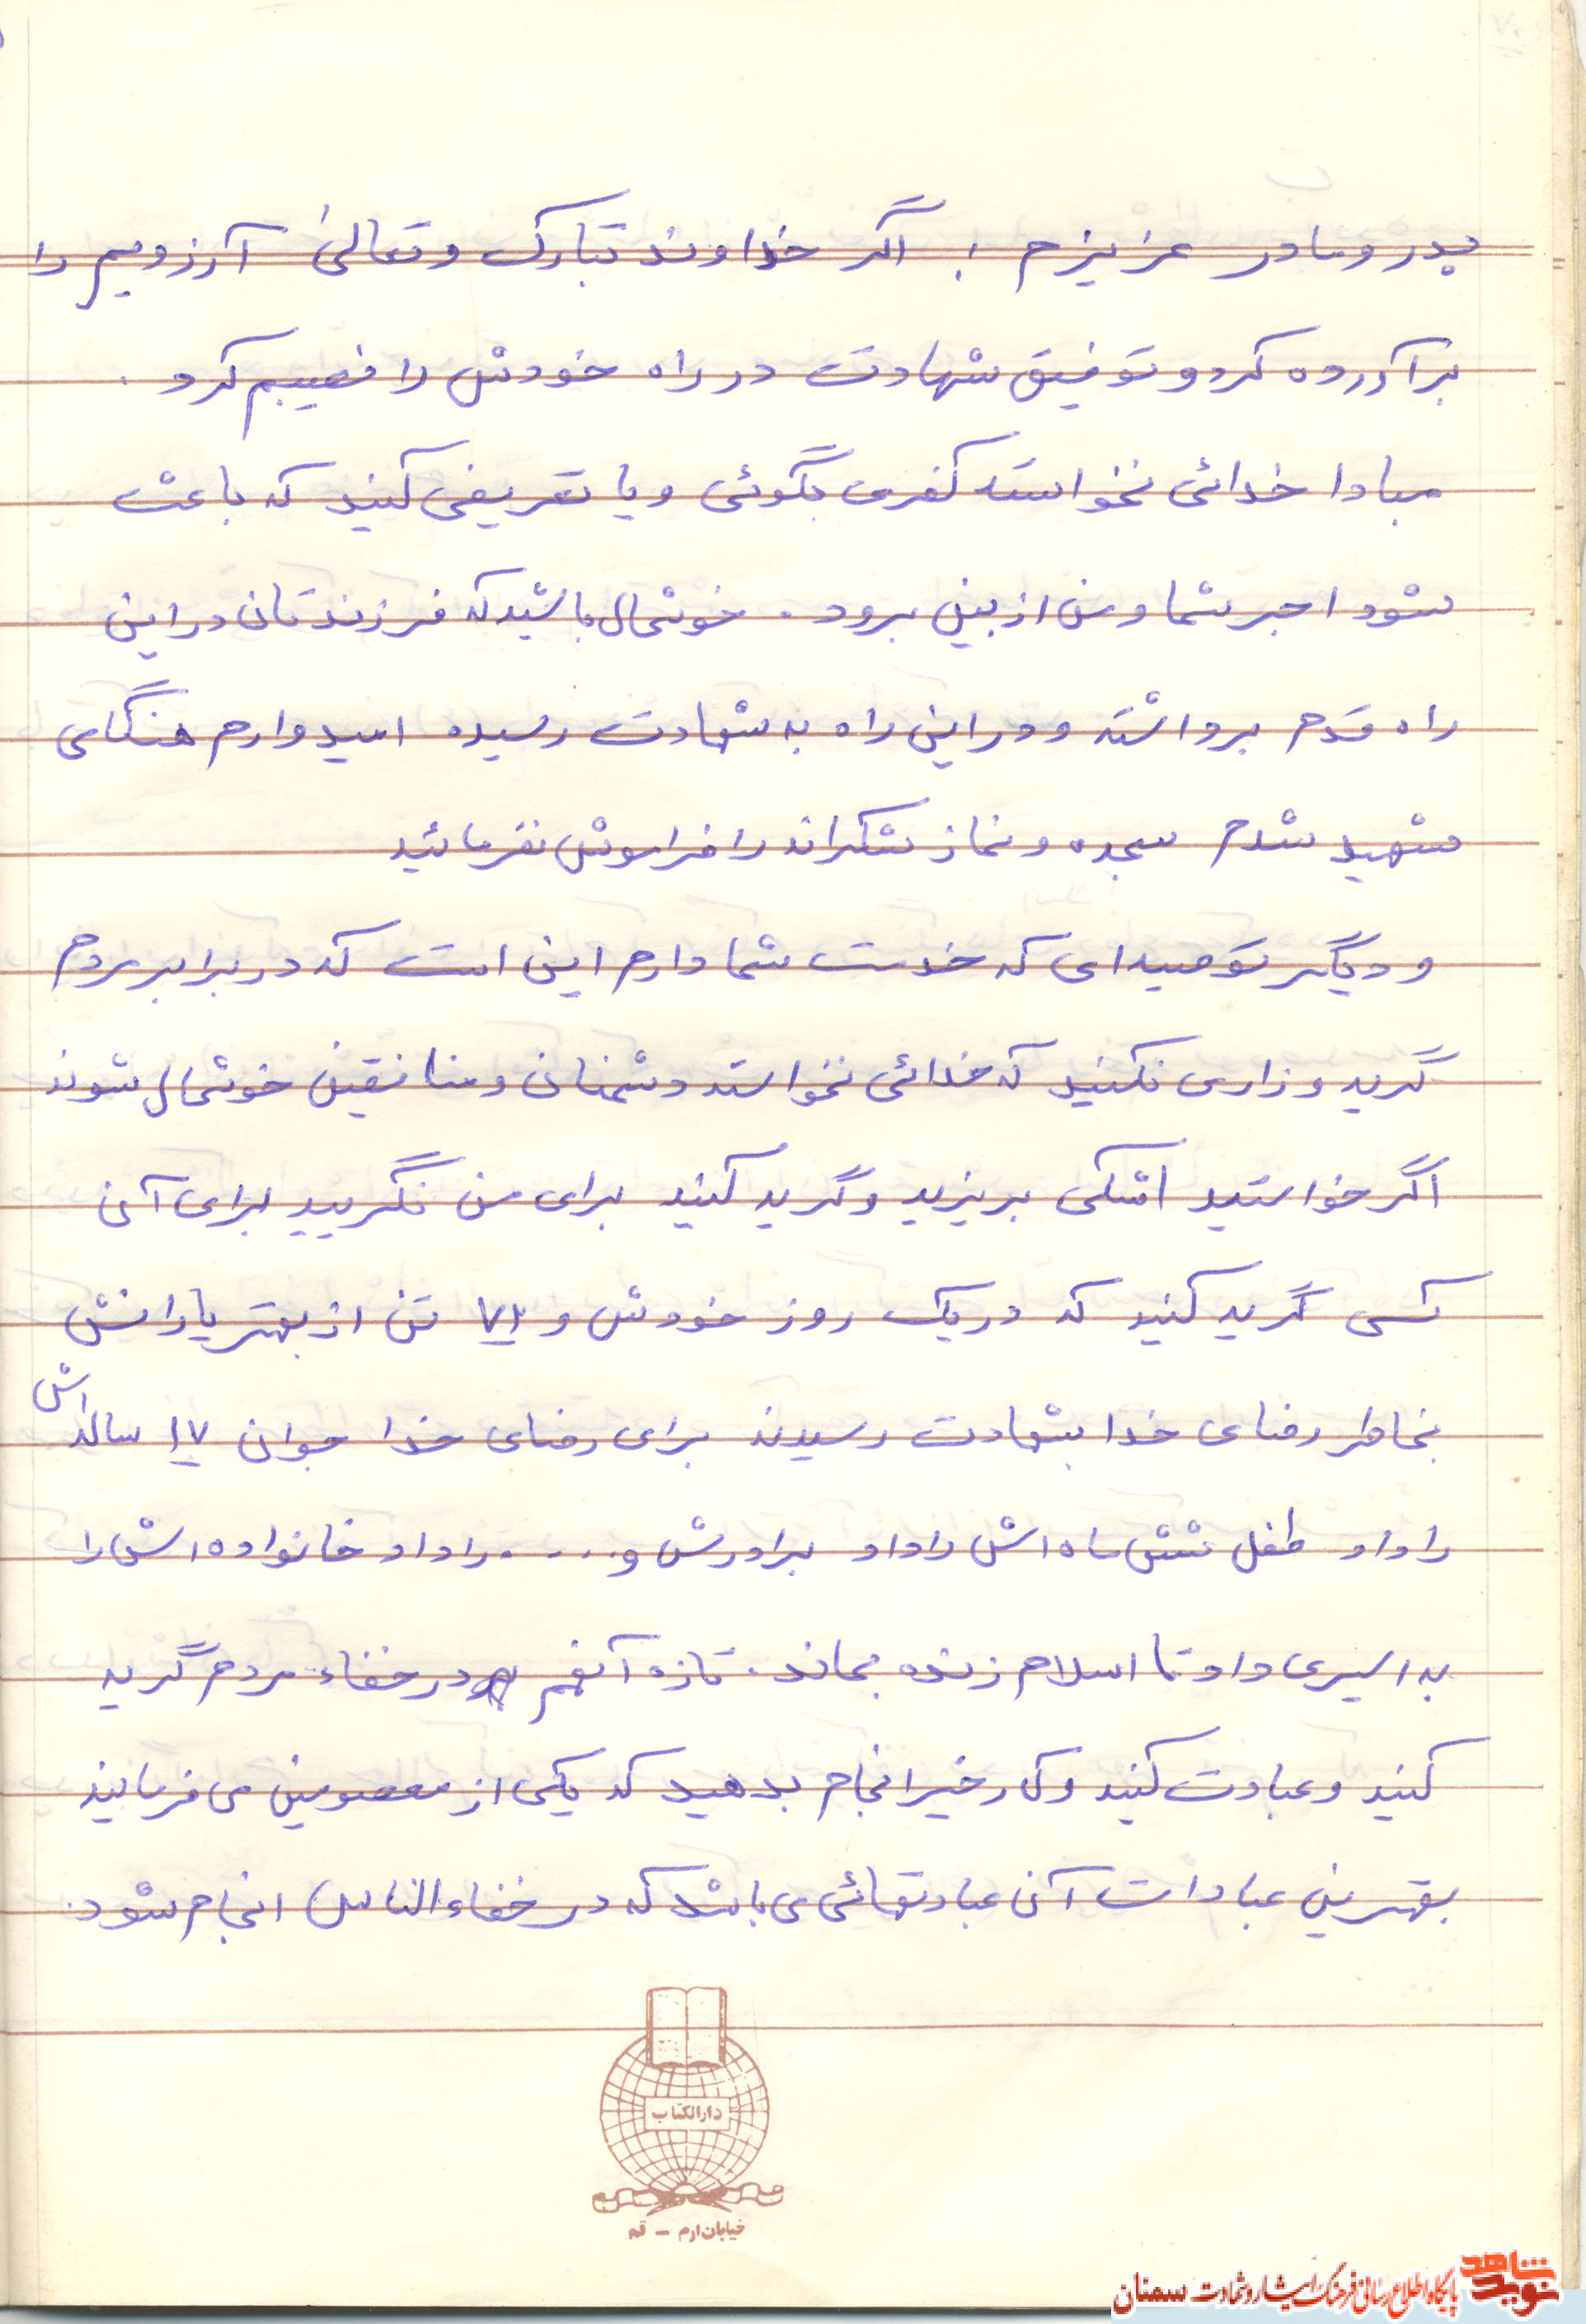 پدر و مادر عزیزم ! اگر خداوند تبارک و تعالی آرزویم را
برآورده کرد و توفیق شهادت در راه خودش را نصیبم کرد .
مبادا خدائی نخواسته کفری بگوئی و یا تعریفی کنید که باعث
شود اجر شما و من از بین برود . خوشحال باشید که فرزندتان در این
راه قدم برداشته و در این راه به شهادت رسیده امیدوارم هنگامی
شهید شدم سجده و نماز شکرانه را فراموش نفرمائید
و دیگر توصیه ای که خدمت شما دارم این است که در برابر مردم
گریه و زاری نکنید که خدائی نخواسته دشمنان و منافقین خوشحال شوند
اگر خواستید اشکی بریزید و گریه کنید برای من نگریید برای آن
کسی گریه کنید که در یک روز خودش و تن از بهتر یارانش
بخاطر رضای خدا بشهادت رسیدند برای رضای خدا جوان ۱۷ ساله اش
را داد طفل شش ماه اش را داد برادرش و .... را داد خانواده اش را
به اسیری داد تا اسلام زنده بماند . تازه آنهم در خفاء مردم گریه
کنید و عبادت کنید و کار خیر انجام بدهید که یکی از معصومین می فرمایند
بهترین عبادات آن عبادتهائی می باشد که در خفاء الناس انجام شود .
دارالکتاب
خیابان ارم - قم
نوید شاهد
پایگاه اطلاع رسانی فرهنگ ایثار و شهادت سمنان